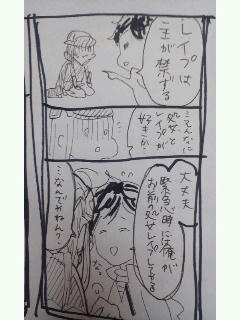 レイプは
主が禁ずる
こそんなに
処女と
レイプが
好きか…
大丈夫
緊急時には俺が
お前の処女レイプしてやる
…なんでやねん?